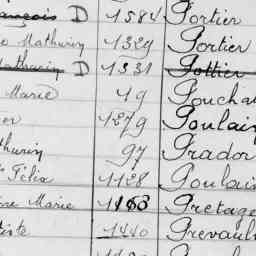 ançois D 1584 Portier
Mathurin 1329 Portier
Mathurin D 1331 Pottier
Marie 49 Pouchar
1279 Poulain
thurin 97 Prador
Félix 1128 Poulain
Marie 1163 Pretage
tiste 1440 Prevaul